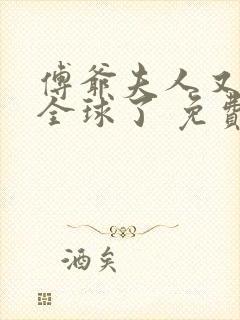 傅爺夫人又
全球了 免費
酒矣